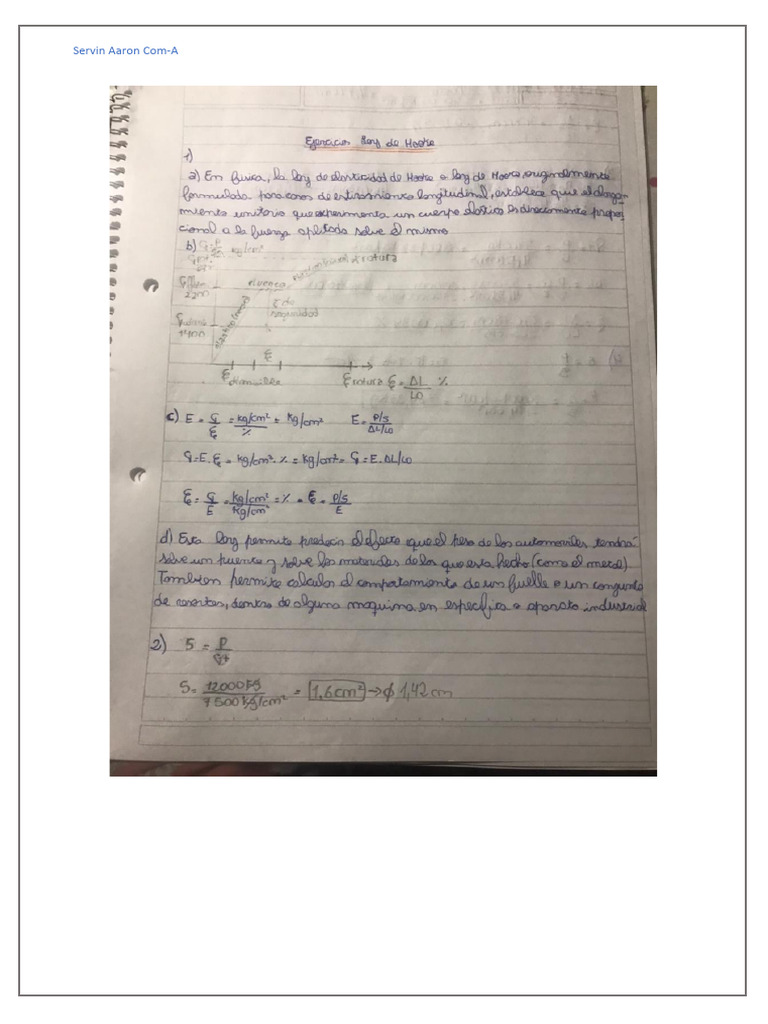 Servin Aaron Com-A
Ejercicios Ley de Hooke
1)
a) En fisica, la ley de elasticidad de Hooke o ley de Hooke, originalmente
formulada para casos de estiramiento longitudinal, establece que el alarga-
miento unitario que experimenta un cuerpo elastico es directamente propor-
cional a la fuerza aplicada sobre el mismo
b) kg/cm²
rotura
fluencia
2200
1400
elastico
ε
ε rotura ε = ΔL/LO %
c) E = σ/ε = kg/cm²/% = kg/cm² E = P/S / ΔL/LO
σ = E.ε = kg/cm².% = kg/cm² = σ = E.ΔL/LO
ε = σ/E = kg/cm²/kg/cm² = % = ε = P/S / E
d) Esta ley permite predecir el efecto que el peso de los automoviles tendrá
sobre un puente y sobre los materiales de los que esta hecho (como el metal).
Tambien permite calcular el comportamiento de un fuelle o un conjunto
de resortes, dentro de alguna maquina en especifico o aparato industrial
2) S = P/σt
S = 12000kg/7500kg/cm² = 1,6cm² → ϕ 1,42cm